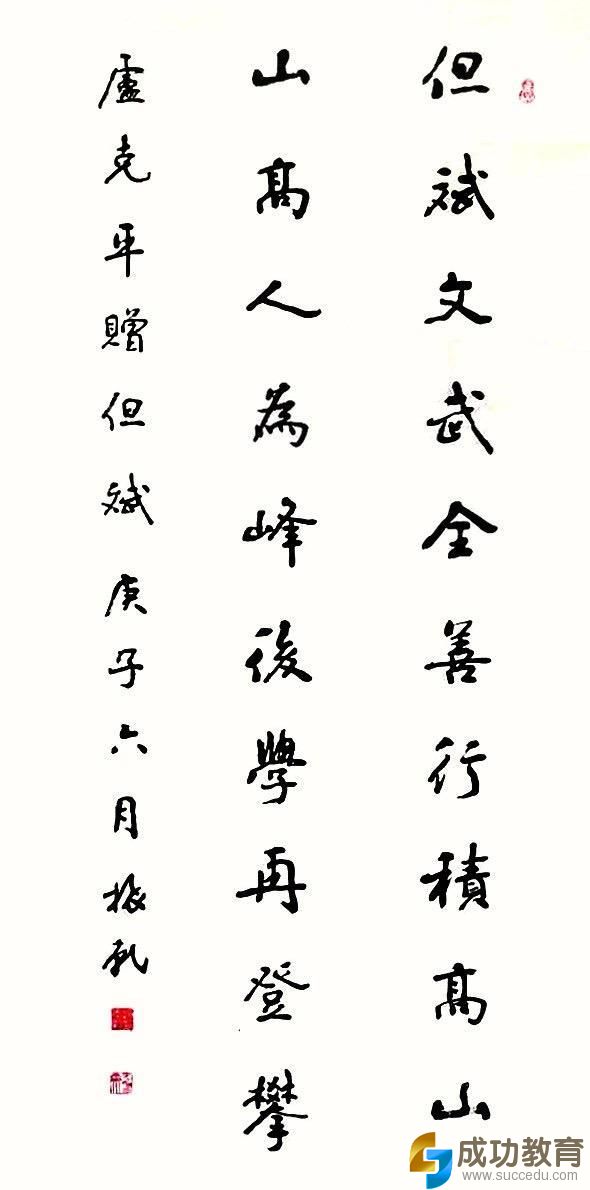 但斌文武全善行積高山
山高人為峰後學再登攀
盧克平贈但斌庚子六月振乳
成功教育
www.succedu.com